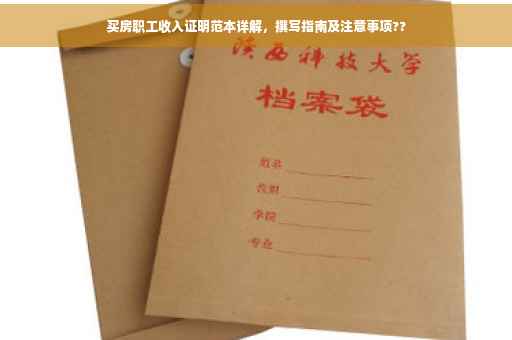 买房职工收入证明范本详解，撰写指南及注意事项??
陕西科技大学
档案袋
姓名
学院
专业